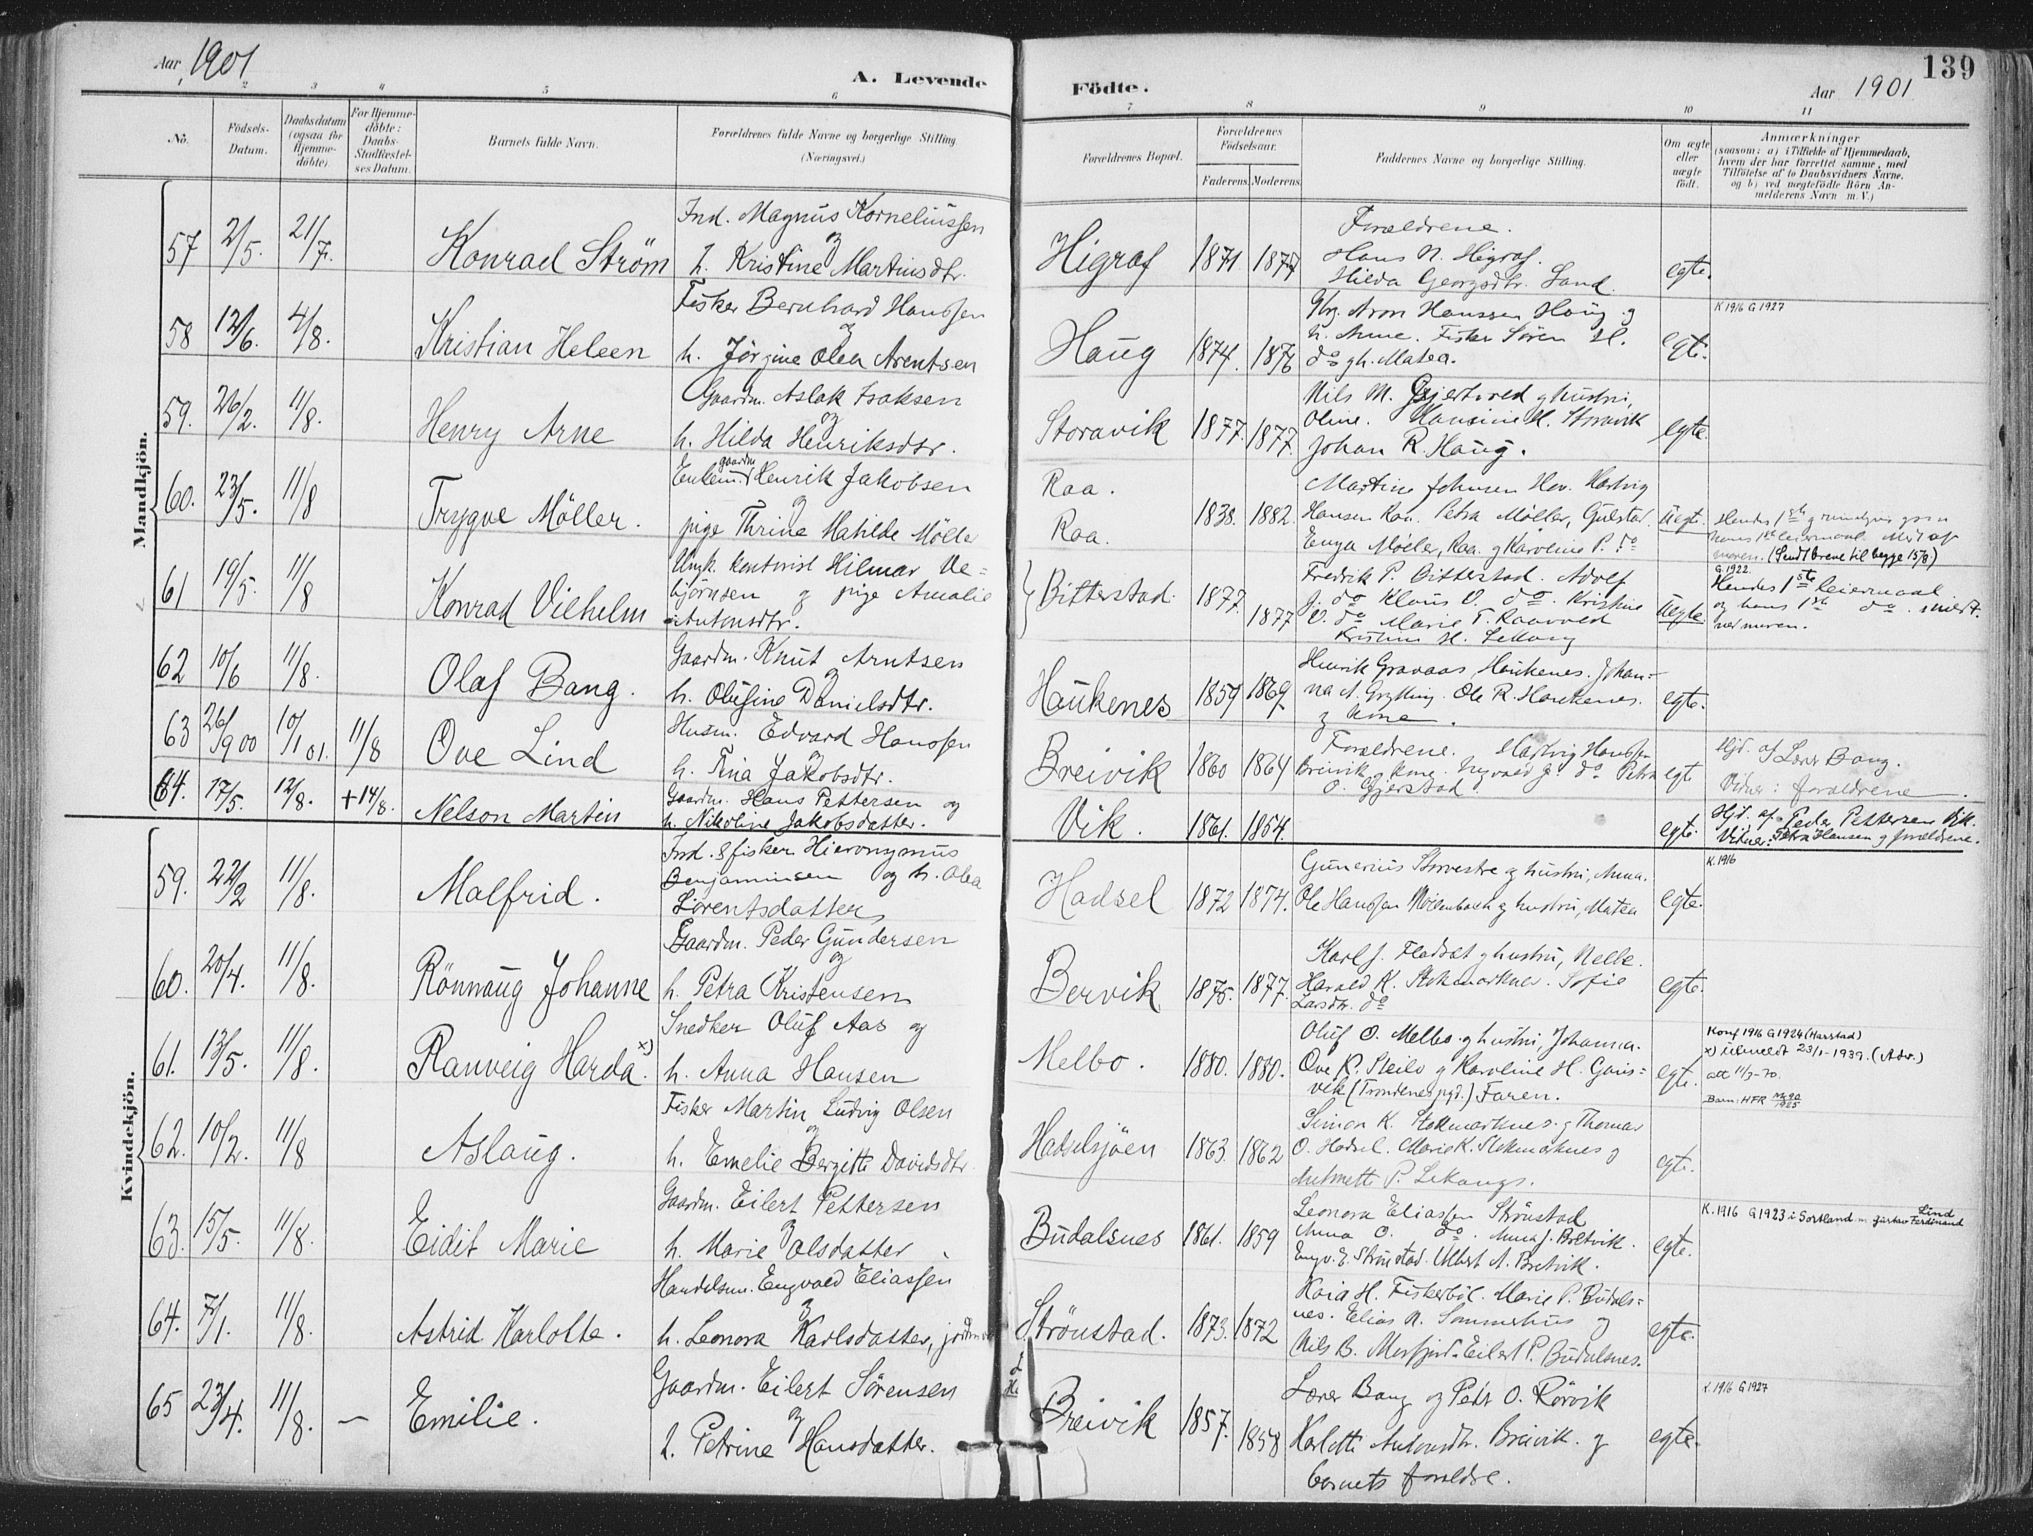 Aar 1901
A. Levende
Födte.
139
Aar 1901
1 2 3 4 5 6 7 8 9 10 11
No.
Födsels-
Datum.
Daabsdatum
(ogsaa for
Hjemme-
döbte).
For Hjemme-
döbte:
Daabs-
Stadfæstel-
ses Datum.
Barnets fulde Navn.
Forældrenes fulde Navne og borgerlige Stilling
(Næringsvei.)
Forældrenes Bopæl.
Forældrenes
Födselsaar.
Faderens. Moderens.
Faddernes Navne og borgerlige Stilling.
Om ægte
eller
uægte
födt.
Anmærkninger
(saasom: a) i Tilfælde af Hjemmedaab,
hvem der har forrettet samme, med
Tilföielse af to Daabsvidners Navne.
og b) ved uægtefödte Börn An-
melderens Navn m. V.)
Mandkjön.
57 2/5. 21/7. Konrad Ström
Ind. Magnus Korneliussen
og
h. Kristine Martinsdtr.
Higraf 1871. 1877
Forældrene.
Hans N. Higraf.
Hilda Georgsdtr. Sand.
egte.
58 12/6. 4/8. Kristian Heleen
Fisker Bernhard Hanssen
og
h. Jörgine Olea Arentsen
Haug 1874. 1876
Gbr. Aron Hanssen Haug og
h. Anne. Fisker Sören H.
do g h. Matea.
egte.
K 1916 G 1927
59. 26/2. 11/8. Henry Arne
Gaardm. Aslak Isaksen
og
h. Hilda Henriksdtr.
Storavik 1877. 1877.
Nils M. Gjertsved g hustru,
Oline. Hansine H. Storavik
Johan R. Haug.
egte.
60. 23/5. 11/8 Trygve Möller.
Enkem. gaardm Henrik Jakobsen
og
pige Thrine Matilde Mölle
Raa.
Raa. 1838. 1882.
Martine Johnsen Hov. Hartvig
Hansen Raa. Petra Möller, Gulstad
Enga Möller, Raa. g Karoline P. do
Uegte.
(Sendt breve til begge 15/8)
61 19/5. 11/8 Konrad Vilhelm
Ungk. kontorist Hilmar Ve-
björnsen og pige Amalie
Antonsdtr.
Bitterstad 1877. 1877
Fredrik P. Bitterstad. Adolf
J. do Klaus O. do. Kristine
O. do Marie T. Raavold
Uegte.
G. 1922.
Hendes 1ste leiermaal
og hans 1ste do.
ved moren.
62 10/6 11/8. Olaf Bang.
Gaardm. Knut Arntsen
og
h. Olufine Danielsdtr.
Haukenes 1859 1869.
Henrik Gravaas, Haukenes. Johan-
na A. Grytting. Ole R. Haukenes.
og kone.
egte.
63 26/9 00 10/1 01. 11/8 Ove Lind
Husm. Edvard Hanssen
og
h. Tina Jakobsdtr.
Breivik 1860 1864
Forældrene. Hartvig Hanssen
Breivik g kone. do. Petra
O. Gjerstad.
egte
Hjd. af Lærer Bang.
Vidner: forældrene.
64. 17/5. 12/8. +14/8. Nelson Martin
Gaardm. Hans Pettersen og
h. Nikoline Jakobsdatter.
Vik. 1861. 1864.
egte.
Hjd. af Peder Pettersen Vik.
Vidner: Petra Hansen g forældrene.
Kvindekjön.
59. 22/2 11/8. Malfrid.
Ind. & fisker Hieronymus
Benjaminsen og h. Olea
Lorentsdatter
Hadsel 1872 1874.
Gunerius Storvestre g hustru, Anna.
Ole Hanssen g hustru, Matea
egte.
K. 1916
60. 20/4. 11/8. Rönnaug Johanne
Gaardm. Peder Gundersen
og
h. Petra Kristensen
Bervik 1875. 1877.
Karl J. Fladset g hustru, Nelle.
Harald K. Stokmarknes. Sofie
Larsdtr. do
egte.
61. 13/5. 11/8. Ranveig Harda. x)
Snedker Oluf Aas og
h. Anna Hansen
Melbo. 1880. 1880.
Oluf O. Melbo g hustru, Johanna.
Ove R. Steilo g Karoline H. Gaus-
vik (Trondenes pgd.) Faren.
egte.
Konf 1916 G 1924 (Harstad)
x) utmeldt 23/1-1939. (Adv.)
att 11/3-70.
Barn: HFR
62. 10/2. 11/8 Aslaug.
Fisker Martin Ludvig Olsen
og
h. Emelie Bergitte Davidsdtr.
Hadselsjöen 1863. 1862
Simon K. Stokmarknes. g Thomas
O. Hadsel. Marie K. Stokmarknes g
Antonette P. Lekangs.
egte.
63. 15/5. 11/8. Eidit Marie
Gaardm. Eilert Pettersen
og
h. Marie Olsdatter
Budalsnes 1861. 1859
Leonora Eliassen Strönstad
Anna O. do. Anna J. Breivik.
Engv. E. Strönstad. Albert A. Breivik.
egte.
K. 1916 G 1923 i Sortland m. Gustav Ferdinand Lind
64. 7/1. 11/8. Astrid Karlotte.
Handelsm. Engvald Eliassen
og
h. Leonora Karlsdatter, jordm
Strönstad. 1873. 1872
Kaia H. Fiskerböl. Marie P. Budals-
nes. Elias N. Sommerhus og
Nils B. Morfjord. Eilert P. Budalsnes.
egte.
65 23/4. 11/8. — Emilie.
Gaardm. Eilert Sörensen
og
h. Petrine Hansdatter.
Breivik 1857. 1858
Lærer Bang og Petr O. Rörvik
Karlotte Antonsdtr. Breivik. og
barnets forældre.
egte.
K. 1916 G 1927